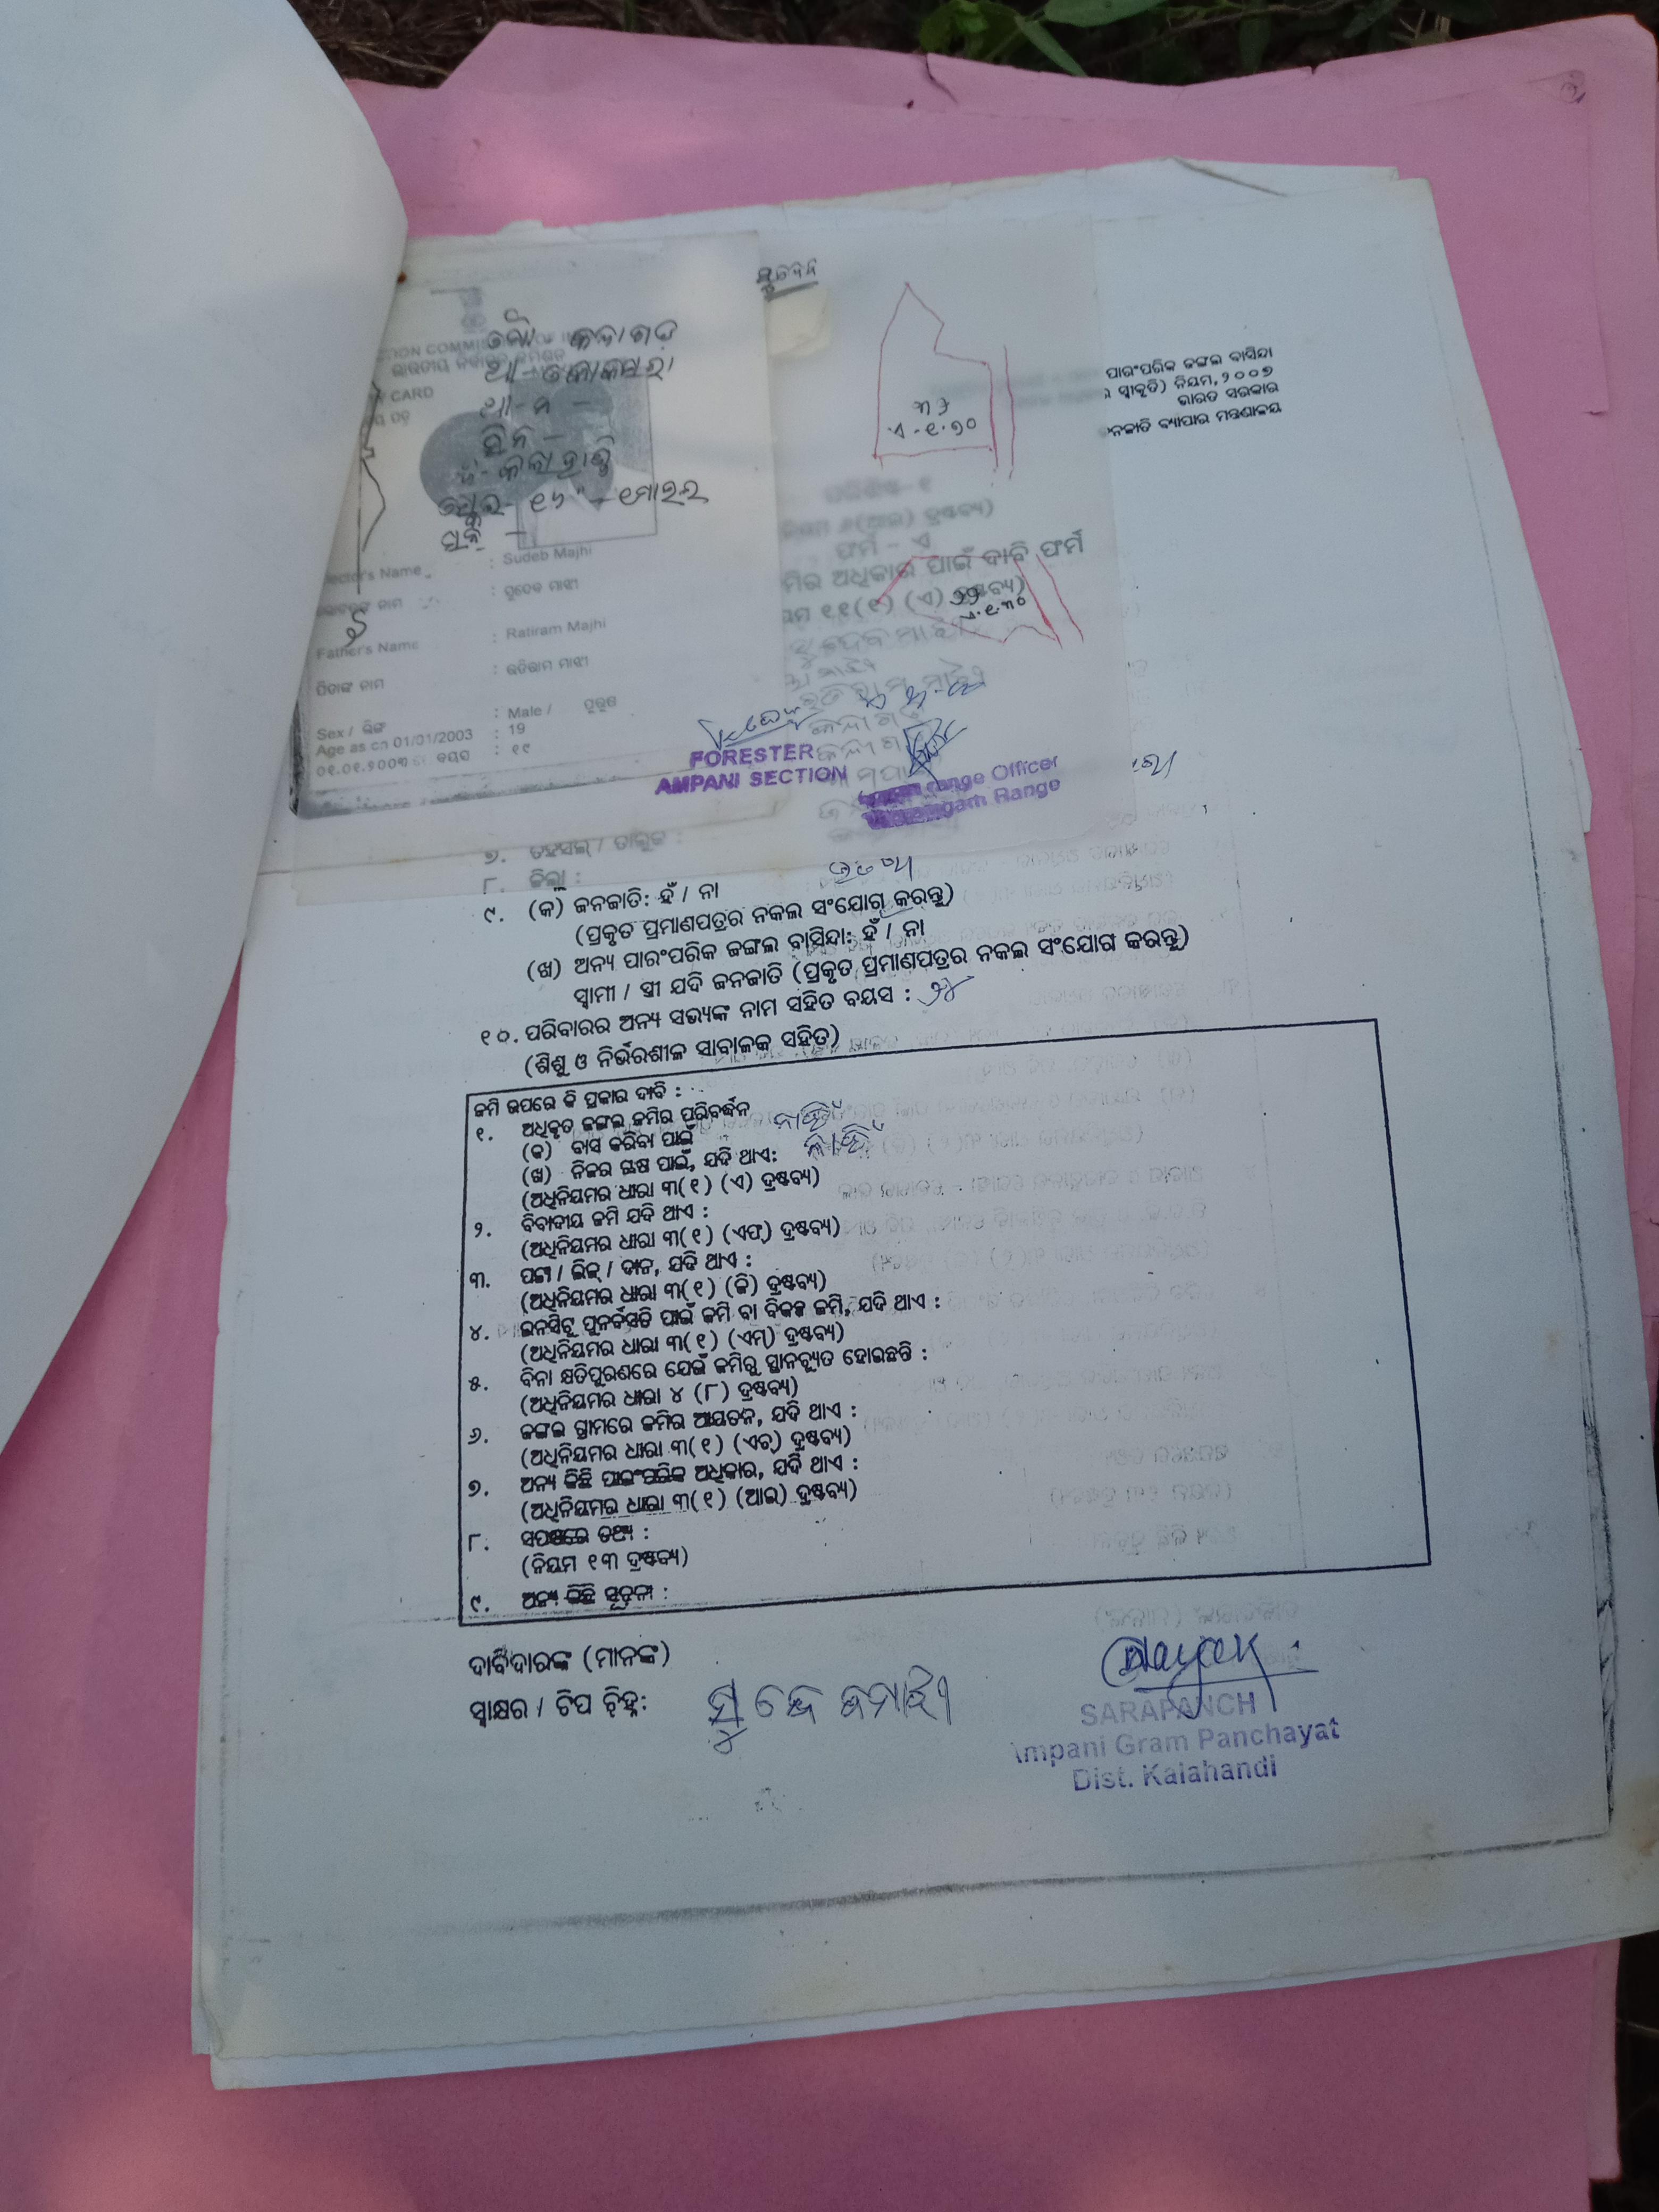 ସୁଦେବ
ମୌ- କନ୍ଦାଗଡ଼
ଥା- କୋକସରା
ଥା-ନ -
ଜି- କଳାହାଣ୍ଡି
ସ୍କେଲ- ୧୬" - ୧ମାଇଲ
CARD
Elector's Name : Sudeb Majhi
: ସୁଦେବ ମାଝୀ
Father's Name : Ratiram Majhi
ପିତାଙ୍କ ନାମ : ରତିରାମ ମାଝୀ
Sex / ଲିଙ୍ଗ : Male / ପୁରୁଷ
Age as on 01/01/2003 : 19
୦୧.୦୧.୨୦୦୩ ବୟସ : ୧୯
ଏ-୧.୭୦
ପାରଂପରିକ ଜଙ୍ଗଲ ବାସିନ୍ଦା
ସ୍ୱୀକୃତି) ନିୟମ, ୨୦୦୭
ଭାରତ ସରକାର
ଜନଜାତି ବ୍ୟାପାର ମନ୍ତ୍ରଣାଳୟ
ଫର୍ମ - ଏ
ମିର ଅଧିକାର ପାଇଁ ଦାବି ଫର୍ମ
୧୧(୧) (ଏ) ଦ୍ରଷ୍ଟବ୍ୟ)
ଏ.୧.୩୦
ସୁଦେବ ମାଝୀ
ରତିରାମ ମାଝୀ
FORESTER
AMPANI SECTION
Range Officer
Range
୭. ତହସିଲ୍ / ତାଲୁକ :
୮. ଜିଲ୍ଲା :
୯. (କ) ଜନଜାତି: ହଁ / ନା
(ପ୍ରକୃତ ପ୍ରମାଣପତ୍ରର ନକଲ ସଂଯୋଗ କରନ୍ତୁ)
(ଖ) ଅନ୍ୟ ପାରଂପରିକ ଜଙ୍ଗଲ ବାସିନ୍ଦା: ହଁ / ନା
ସ୍ୱାମୀ / ସ୍ତ୍ରୀ ଯଦି ଜନଜାତି (ପ୍ରକୃତ ପ୍ରମାଣପତ୍ରର ନକଲ ସଂଯୋଗ କରନ୍ତୁ)
୧୦. ପରିବାରର ଅନ୍ୟ ସଭ୍ୟଙ୍କ ନାମ ସହିତ ବୟସ : ୨୪
(ଶିଶୁ ଓ ନିର୍ଭରଶୀଳ ସାବାଳକ ସହିତ)
ଜମି ଉପରେ କି ପ୍ରକାର ଦାବି :
୧. ଅଧିକୃତ ଜଙ୍ଗଲ ଜମିର ପରିବର୍ଦ୍ଧନ
(କ) ବାସ କରିବା ପାଇଁ ନାହିଁ
(ଖ) ନିଜର ଚାଷ ପାଇଁ, ଯଦି ଥାଏ: ନାହିଁ
(ଅଧିନିୟମର ଧାରା ୩(୧) (ଏ) ଦ୍ରଷ୍ଟବ୍ୟ)
୨. ବିବାଦୀୟ ଜମି ଯଦି ଥାଏ :
(ଅଧିନିୟମର ଧାରା ୩(୧) (ଏଫ୍) ଦ୍ରଷ୍ଟବ୍ୟ)
୩. ପଟ୍ଟା / ଲିଜ୍ / ଦାନ, ଯଦି ଥାଏ :
(ଅଧିନିୟମର ଧାରା ୩(୧) (ଜି) ଦ୍ରଷ୍ଟବ୍ୟ)
୪. ଇନସିଟୁ ପୁନର୍ବସତି ପାଇଁ ଜମି ବା ବିକଳ୍ପ ଜମି, ଯଦି ଥାଏ :
(ଅଧିନିୟମର ଧାରା ୩(୧) (ଏମ୍) ଦ୍ରଷ୍ଟବ୍ୟ)
୫. ବିନା କ୍ଷତିପୁରଣରେ ଯେଉଁ ଜମିରୁ ସ୍ଥାନଚ୍ୟୁତ ହୋଇଛନ୍ତି :
(ଅଧିନିୟମର ଧାରା ୪ (୮) ଦ୍ରଷ୍ଟବ୍ୟ)
୬. ଜଙ୍ଗଲ ଗ୍ରାମରେ ଜମିର ଆୟତନ, ଯଦି ଥାଏ :
(ଅଧିନିୟମର ଧାରା ୩(୧) (ଏଚ୍) ଦ୍ରଷ୍ଟବ୍ୟ)
୭. ଅନ୍ୟ କିଛି ପାରଂପରିକ ଅଧିକାର, ଯଦି ଥାଏ :
(ଅଧିନିୟମର ଧାରା ୩(୧) (ଆଇ) ଦ୍ରଷ୍ଟବ୍ୟ)
୮. ସପକ୍ଷରେ ତଥ୍ୟ :
(ନିୟମ ୧୩ ଦ୍ରଷ୍ଟବ୍ୟ)
୯. ଅନ୍ୟ କିଛି ସୂଚନା :
ଦାବିଦାରଙ୍କ (ମାନଙ୍କ)
ସ୍ୱାକ୍ଷର / ଟିପ ଚିହ୍ନ: ସୁଦେବମାଝୀ
SARAPANCH
Ampani Gram Panchayat
Dist. Kalahandi